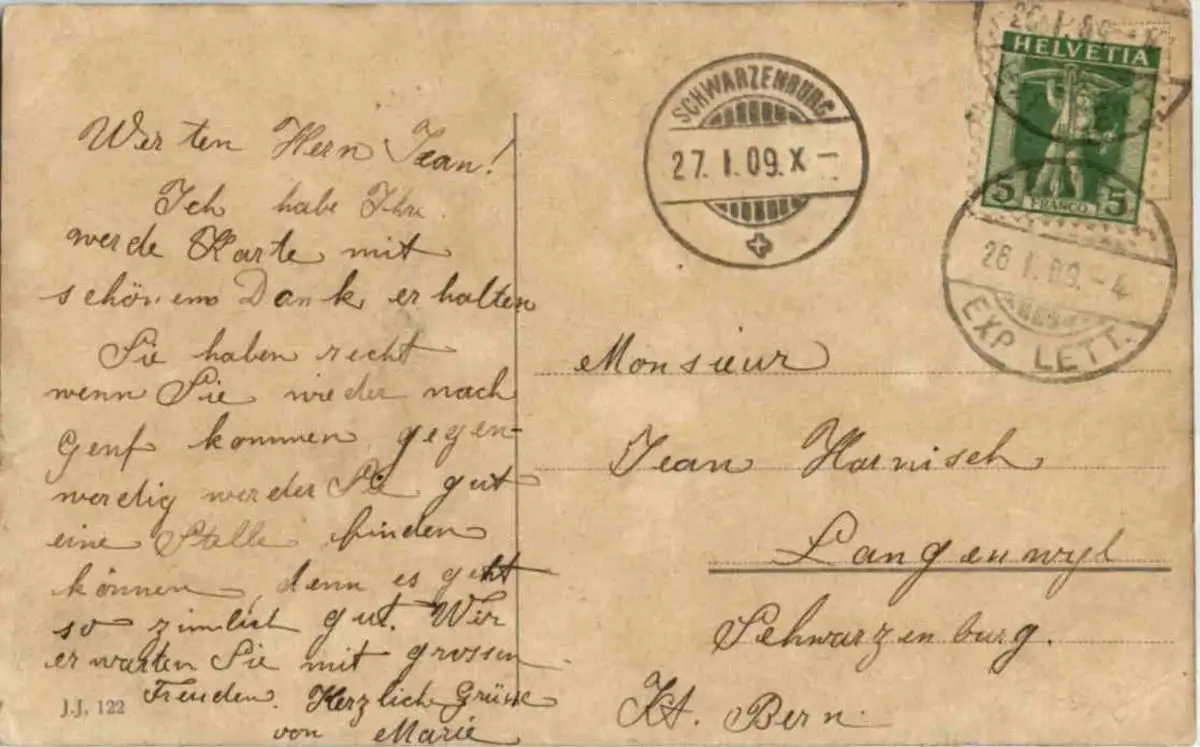 Werten Hern Jean!
Ich habe Ihr
werde Karte mit
schönem Dank erhalten
Sie haben recht
wenn Sie wieder nach
Genf kommen gegen-
werdig werder Sie gut
eine Stelle finden
können, denn es geht
so zimlich gut. Wir
erwarten Sie mit grossen
Freuden. Herzlich Grüsse
von Marie
J.J. 122
SCHWARZENBURG
27. I. 09. X –
26. I. 09.
HELVETIA
5 FRANCO 5
26 I. 09. – 4
EXP. LETT.
Monsieur
Jean Harnisch
Langenwyl
Schwarzenburg.
Kt. Bern.